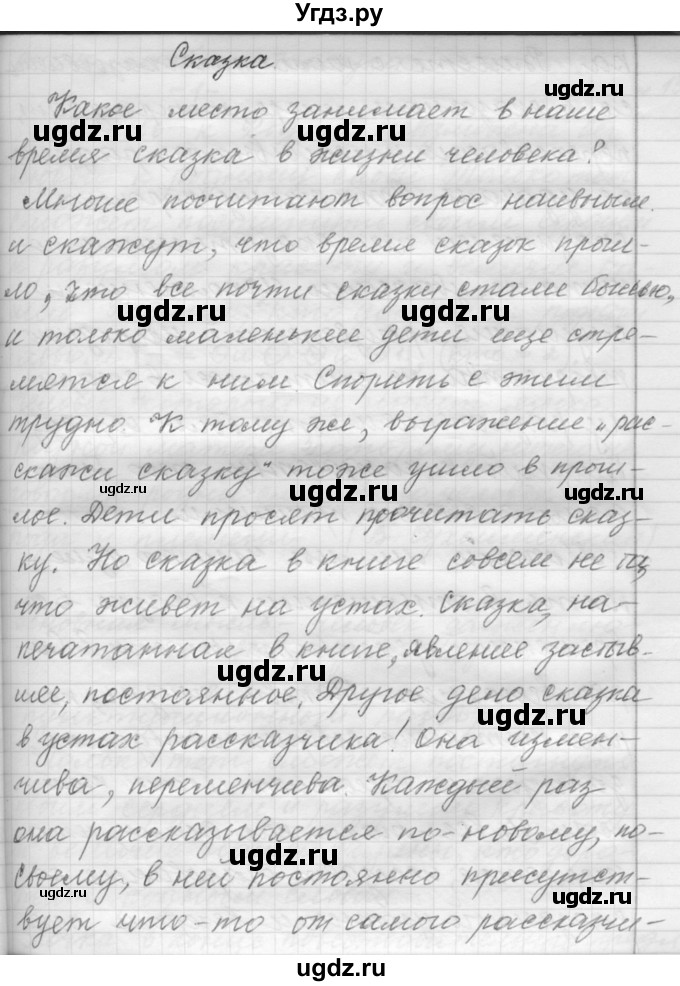 Угдз.ру
Сказка.
Какое место занимает в наше
ugdz.ru ugdz.ru
время сказка в жизни человека?
Многие посчитают вопрос наивным
и скажут, что время сказок прош-
ло, что все почти сказки стали былью,
ugdz.ru ugdz.ru
и только маленькие дети еще стре-
мятся к ним. Спорить с этим
трудно. К тому же, выражение „рас-
скажи сказку" тоже ушло в прош-
ugdz.ru ugdz.ru ugdz.ru
лое. Дети просят прочитать сказ-
ку. Но сказка в книге совсем не та,
что живет на устах. Сказка, на-
печатанная в книге, явление застыв-
ugdz.ru
шее, постоянное. Другое дело сказка
ugdz.ru
в устах рассказчика! Она измен-
чива, переменчива. Каждый раз
она рассказывается по-новому, по-
ugdz.ru
своему, в ней постоянно присутст-
ugdz.ru
вует что-то от самого рассказчи-
ugdz.ru
ugdz.ru